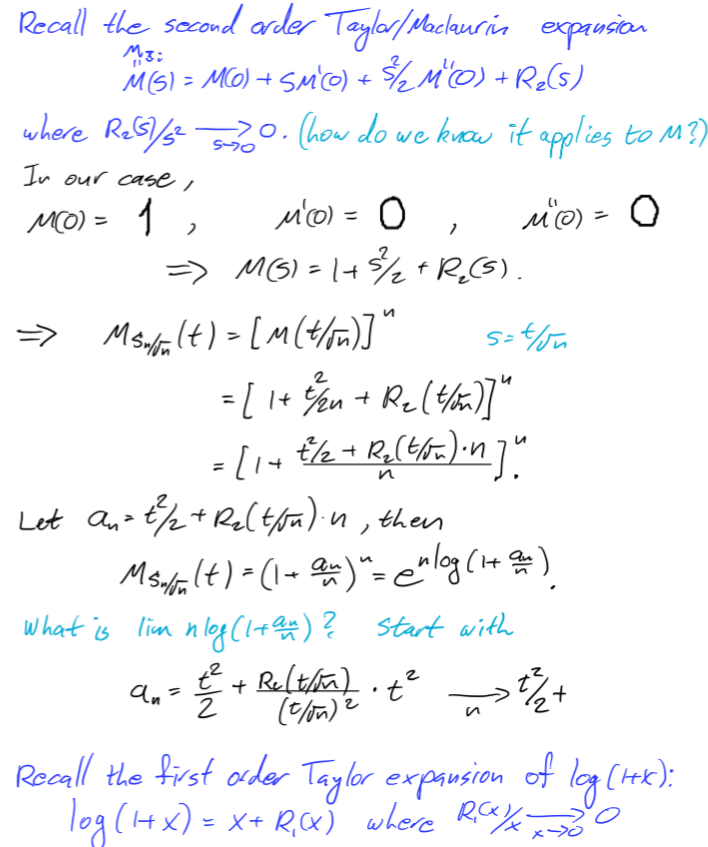 Recall the second order Taylor/Maclaurin expansion
M(s) = M(0) + sM'(0) + s²/2 M''(0) + R₂(s)
where R₂(s)/s² → 0. (how do we know it applies to M?)
s→0
In our case,
M(0) = 1 , M'(0) = 0 , M''(0) = 0
⇒ M(s) = 1 + s²/2 + R₂(s).
⇒ M_{Sₙ/√n}(t) = [M(t/√n)]ⁿ s = t/√n
= [1 + t²/2n + R₂(t/√n)]ⁿ
= [1 + (t²/2 + R₂(t/√n)·n)/n]ⁿ.
Let aₙ = t²/2 + R₂(t/√n)·n , then
M_{Sₙ/√n}(t) = (1 + aₙ/n)ⁿ = e^{n log(1 + aₙ/n)}.
What is lim n log(1 + aₙ/n)? Start with
aₙ = t²/2 + R₂(t/√n)/(t/√n)² · t² →ₙ t²/2 +
Recall the first order Taylor expansion of log(1+x):
log(1+x) = x + R₁(x) where R₁(x)/x → 0
x→0